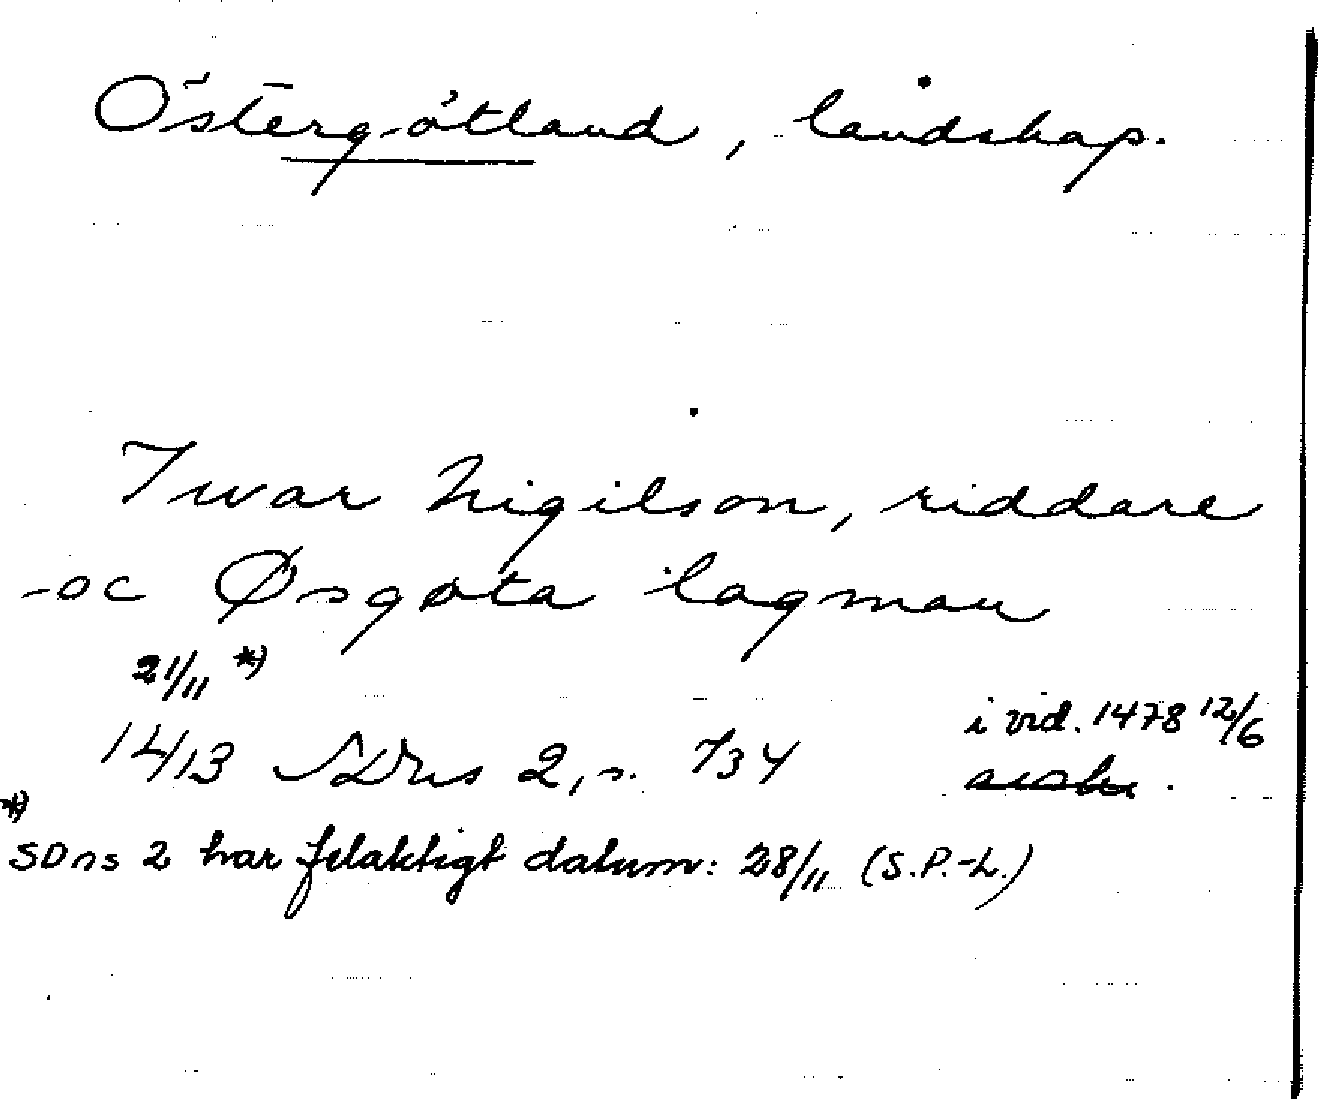 Östergötland, landskap.
Iwar Nigilson, riddare
oc Øsgøta lagman
21/11 *)
i vid. 1478 12/6
1413 SDns 2, s. 734
*)
SDns 2 har felaktigt datum: 28/11 (S.P.-L.)